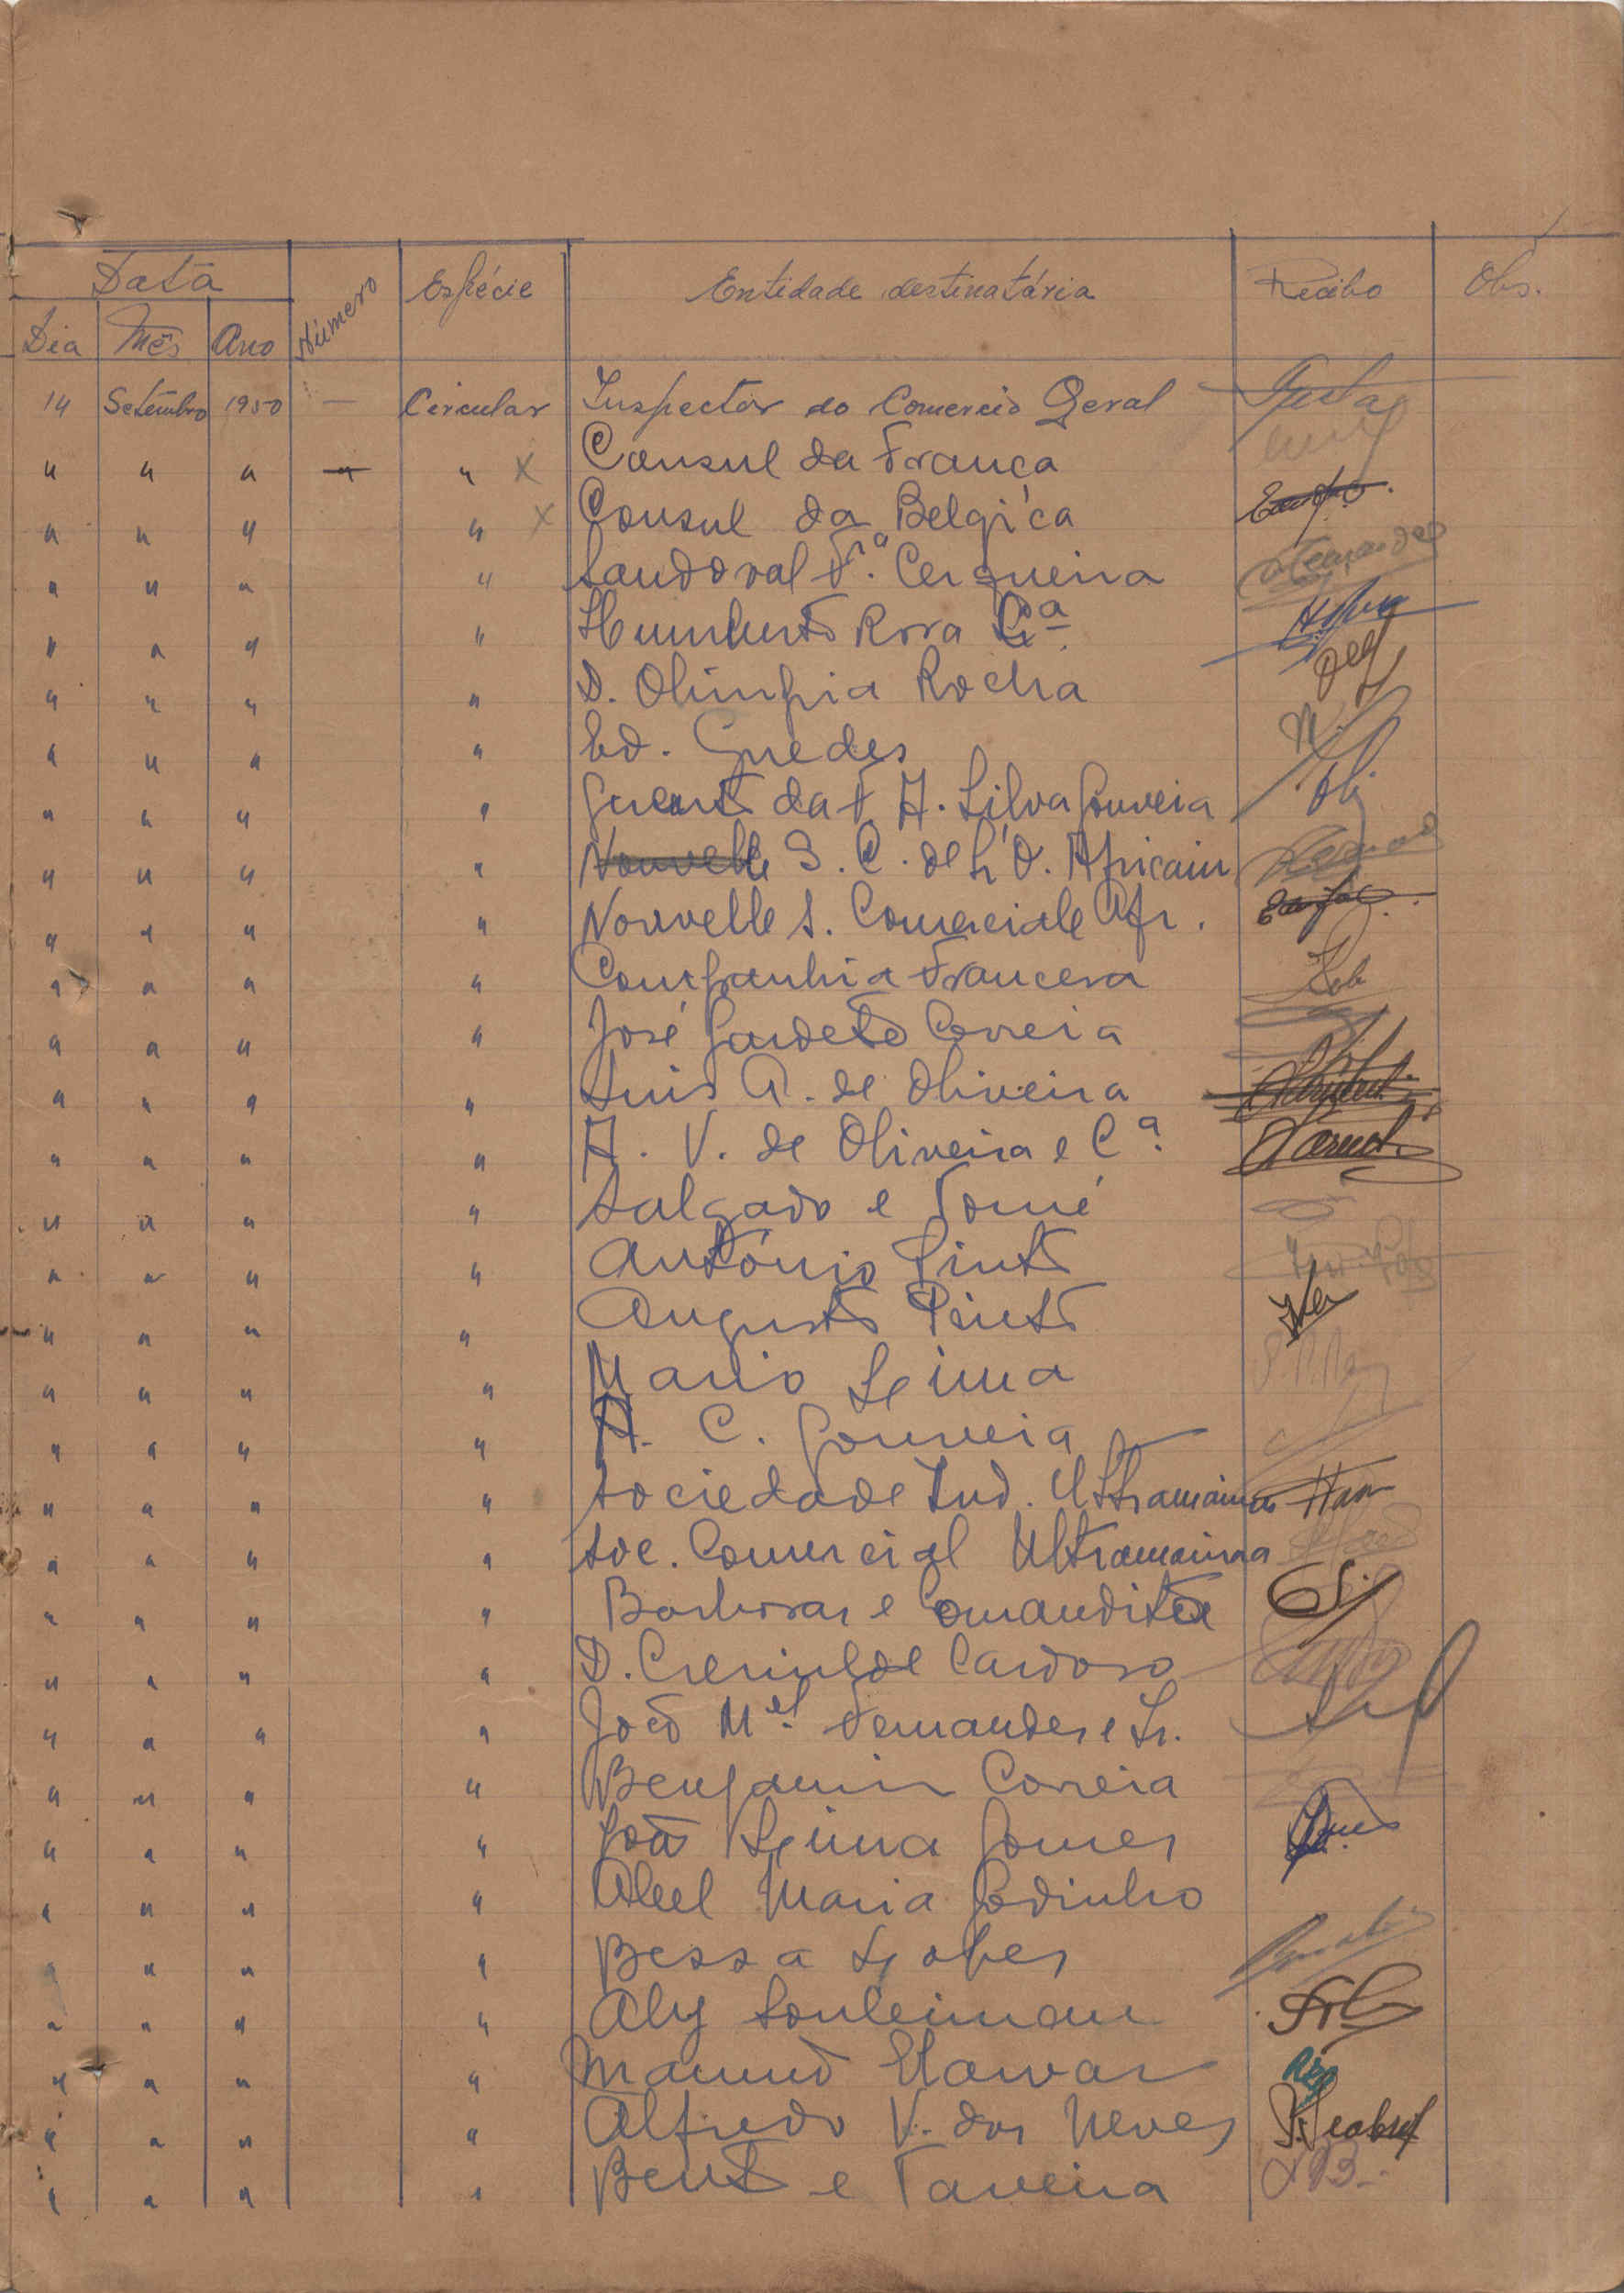 Data
Número
Espécie
Entidade destinatária
Recibo
Obs.
Dia Mês Ano
14 Setembro 1950 — Circular Inspector do Comercio Geral
" " " — " x Consul da França
" " " " x Consul da Belgica
" " " " Sandoval F.ª Cerqueira
" " " " Humberto Rosa Cª
" " " " D. Olimpia Rocha
" " " " Ed. Guedes
" " " " Gerente da F. A. Silva Gouveia
" " " " Nouvelle S. C. de L'O. Africain
" " " " Nouvelle S. Comerciale Afr.
" " " " Companhia Francesa
" " " " José Gardete Correia
" " " " Luis A. de Oliveira
" " " " A. V. de Oliveira e Cª
" " " " Salgado e Tomé
" " " " António Pinto
" " " " Augusto Pinto
" " " " Mario Lima
" " " " A. C. Gouveia
" " " " Sociedade Ind. Ultramarina
" " " " Soc. Comercial Ultramarina
" " " " Barbosas e Comandita
" " " " D. Cardoso
" " " " João Mel. Fernandes e Ir.
" " " " Benjamin Correia
" " " " João Lima Gomes
" " " " Abel Maria Godinho
" " " " Bessa Lopes
" " " " Aly Souleiman
" " " " Mamud Elawar
" " " " Alfredo V. dos Neves
" " " " Bento e Taveira